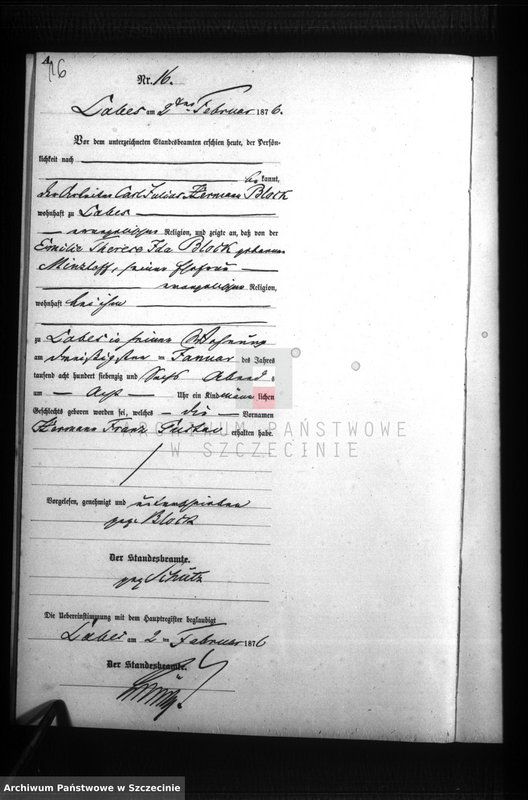 16
Nr. 16.
Labes am 2ten Februar 1876.
Vor dem unterzeichneten Standesbeamten erschien heute, der Persön-
lichkeit nach
be kannt,
der Arbeiter Carl Julius Hermann Block
wohnhaft zu Labes
evangelischer Religion, und zeigte an, daß von der
Emilie Therese Ida Block geborenen
Minzlaff, seiner Ehefrau
evangelischer Religion,
wohnhaft bei ihm
zu Labes in seiner Wohnung
am dreißigsten ten Januar des Jahres
tausend acht hundert siebenzig und Sechs Abends
um Acht Uhr ein Kind männ lichen
Geschlechts geboren worden sei, welches die Vornamen
Hermann Franz Gustav erhalten habe.
Vorgelesen, genehmigt und unterschrieben
gez. Block
Der Standesbeamte.
gez. Schütz
Die Uebereinstimmung mit dem Hauptregister beglaubigt
Labes am 2 ten Februar 1876
Der Standesbeamte.
ARCHIWUM PAŃSTWOWE
W SZCZECINIE
Archiwum Państwowe w Szczecinie